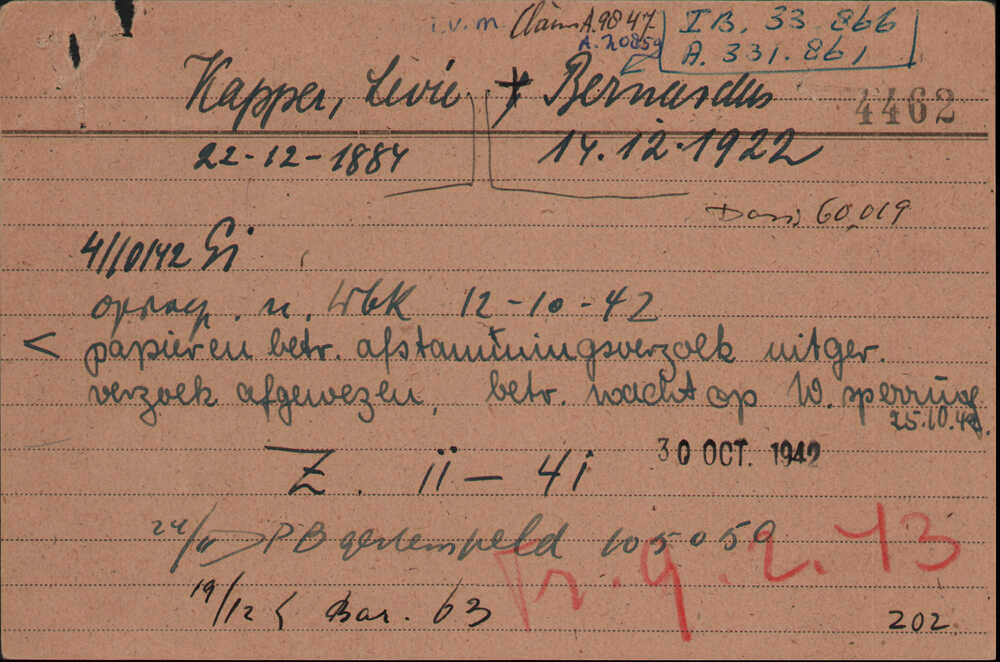 i.v.m. Claim A.9847 IB. 33.866
A.20859 A. 331.861
Kapper, Levie + Bernardus
4462
22-12-1884 14.12.1922
60.019
oproep. n. Wbk 12-10-42
< papieren betr. afstammingsverzoek uitger.
verzoek afgewezen, betr. wacht op W. sperrung
25.10.42.
Z. ii - 41
30 OCT. 1942
24/11 PB gestempeld 105059
Tr. 9.2.43
19/12 Bar. 63
202